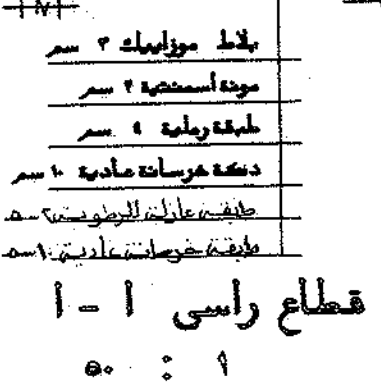 بلاط موزاييك ٣ سم
مونة أسمنتية ٢ سم
طبقة رملية ٤ سم
دكة خرسانة عادية ١٠ سم
طبقة عازلة للرطوبة ٢ سم
طبقة خرسانة عادية ١٠ سم
قطاع رأسى ا - ا
٥٠ : ١